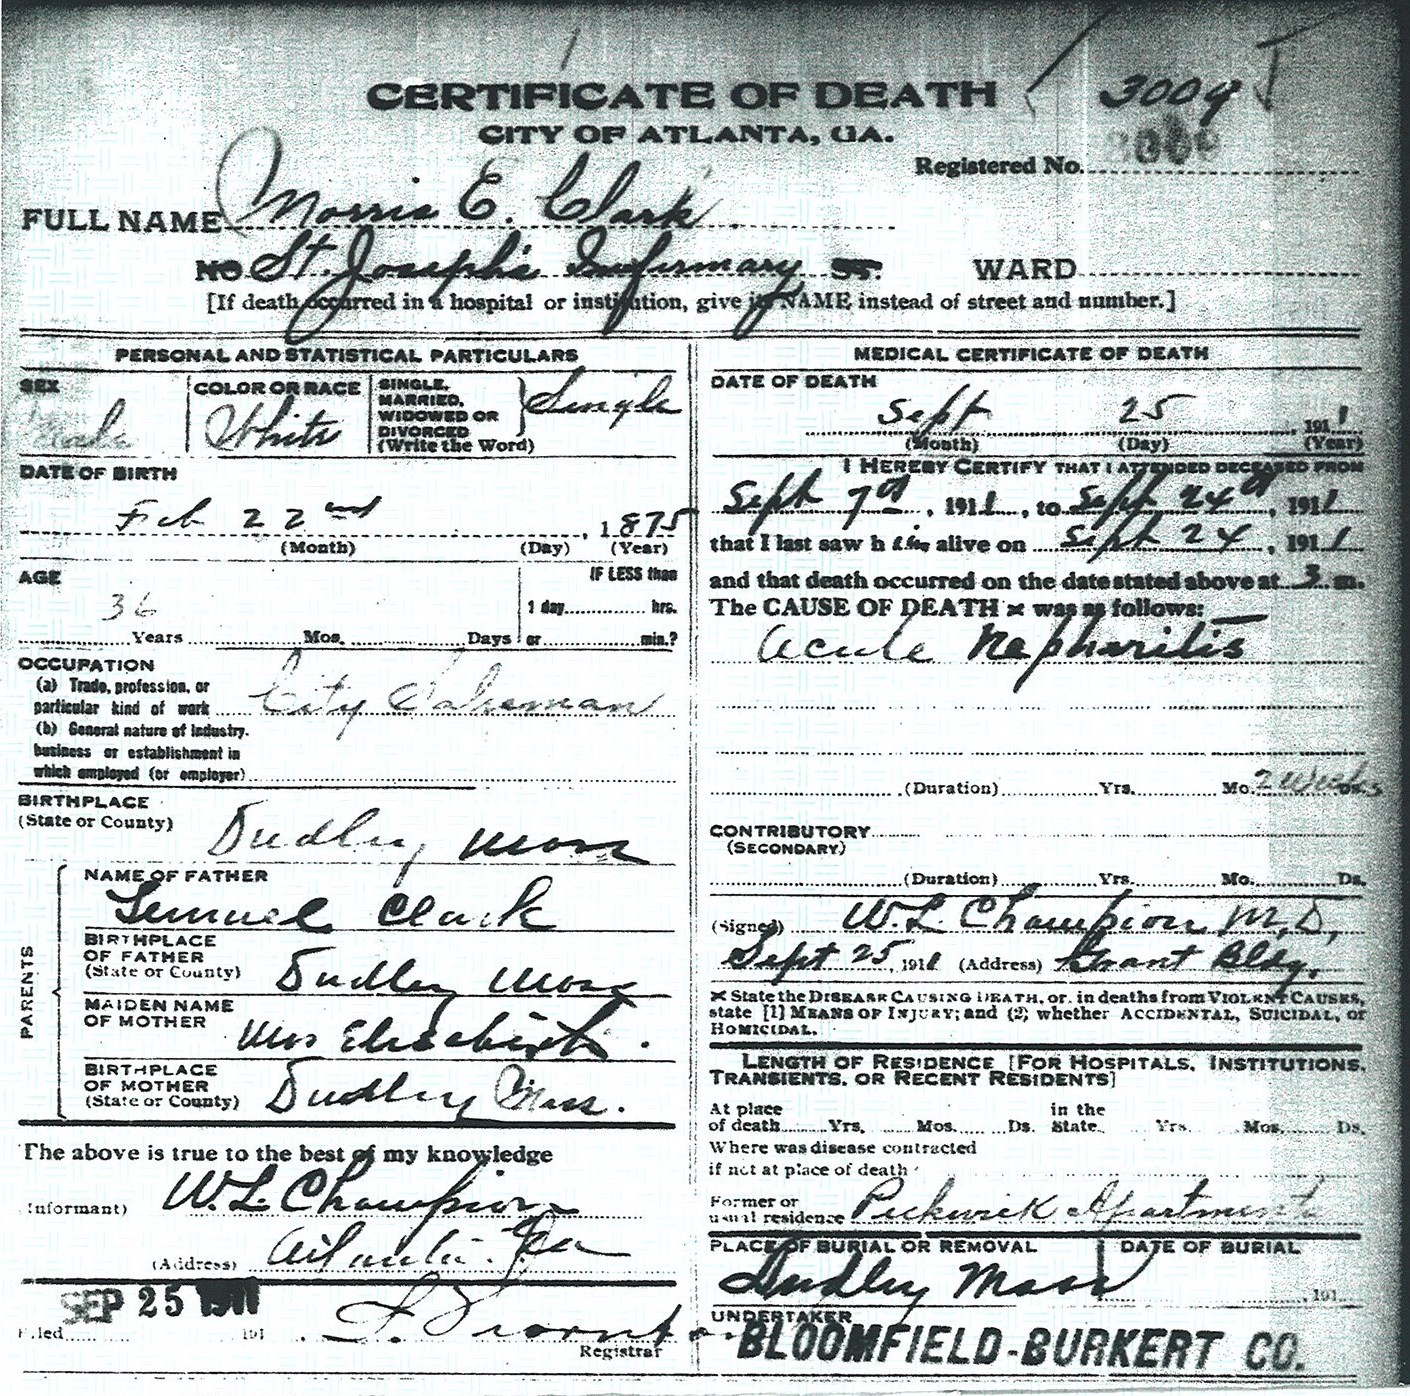 CERTIFICATE OF DEATH
3009
CITY OF ATLANTA, GA.
Registered No.
FULL NAME Morris E. Clark
NO St. Joseph's Infirmary St. WARD
[If death occurred in a hospital or institution, give its NAME instead of street and number.]
PERSONAL AND STATISTICAL PARTICULARS
SEX
Male
COLOR OR RACE
White
SINGLE,
MARRIED,
WIDOWED OR
DIVORCED
(Write the Word)
Single
DATE OF BIRTH
Feb 22nd, 1875
(Month) (Day) (Year)
AGE
36
Years Mos. Days
IF LESS than
1 day hrs.
or min.?
OCCUPATION
(a) Trade, profession, or
particular kind of work City Salesman
(b) General nature of Industry.
business or establishment in
which employed (or employer)
BIRTHPLACE
(State or County)
Dudley Mass
PARENTS
NAME OF FATHER
Lemuel Clark
BIRTHPLACE
OF FATHER
(State or County) Dudley Mass
MAIDEN NAME
OF MOTHER
Mrs Elizabeth.
BIRTHPLACE
OF MOTHER
(State or County) Dudley Mass.
The above is true to the best of my knowledge
Informant) W. L. Champion
(Address) Atlanta Ga
SEP 25 1911
Filed 191
Registrar
MEDICAL CERTIFICATE OF DEATH
DATE OF DEATH
Sept 25, 1911
(Month) (Day) (Year)
I HEREBY CERTIFY THAT I ATTENDED DECEASED FROM
Sept 7th, 1911, to Sept 24th, 1911
that I last saw him alive on Sept 24, 1911
and that death occurred on the date stated above at 3 m.
The CAUSE OF DEATH * was as follows:
Acute Nephuritis
(Duration) Yrs. Mo. 2 Weeks Ds.
CONTRIBUTORY
(SECONDARY)
(Duration) Yrs. Mo. Ds.
(Signed) W. L. Champion M.D.
Sept 25, 1911 (Address) Grant Bldg.
* State the DISEASE CAUSING DEATH, or, in deaths from VIOLENT CAUSES,
state [1] MEANS OF INJURY; and (2) whether ACCIDENTAL, SUICIDAL, or
HOMICIDAL.
LENGTH OF RESIDENCE [FOR HOSPITALS, INSTITUTIONS,
TRANSIENTS, OR RECENT RESIDENTS]
At place in the
of death Yrs. Mos. Ds. State. Yrs. Mos. Ds.
Where was disease contracted
if not at place of death
Former or
usual residence Pickwick Apartments
PLACE OF BURIAL OR REMOVAL
Dudley Mass
DATE OF BURIAL
191
UNDERTAKER
BLOOMFIELD-BURKERT CO.